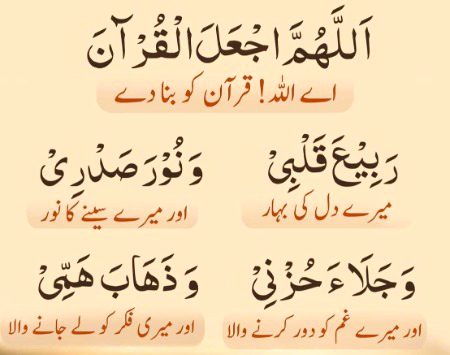 اَللّٰهُمَّ اجْعَلَ الْقُرْآنَ
اے اللہ! قرآن کو بنا دے
رَبِيْعَ قَلْبِيْ وَنُوْرَ صَدْرِيْ
میرے دل کی بہار اور میرے سینے کا نور
وَجَلَاءَ حُزْنِيْ وَذَهَابَ هَمِّيْ
اور میرے غم کو دور کرنے والا اور میری فکر کو لے جانے والا